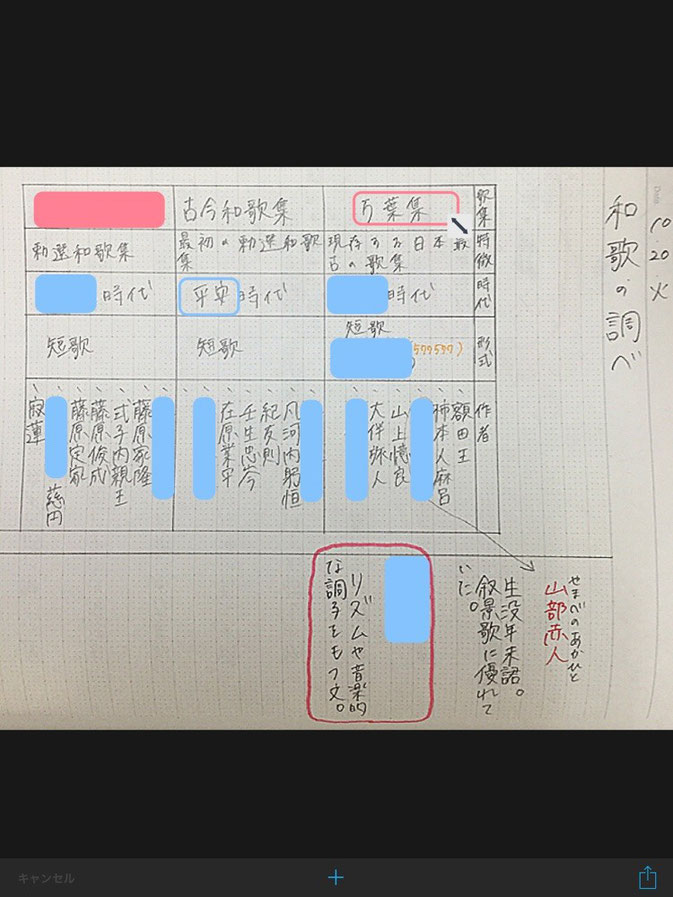 10. 20 火
和歌の調べ
歌集
特徴
時代
形式
作者
万葉集
現存する日本最
古の歌集
時代
短歌
額田王
柿本人麻呂
山上憶良
大伴旅人
古今和歌集
最初の勅選和歌
集
平安時代
短歌
凡河内躬恒
紀友則
壬生忠岑
在原業平
勅選和歌集
時代
短歌
藤原家隆
式子内親王
藤原俊成
藤原定家
慈円
寂蓮
やまべのあかひと
山部赤人
生没年未詳。
叙景歌に優れて
いた。
リズムや音楽的
な調子をもつ文。
キャンセル